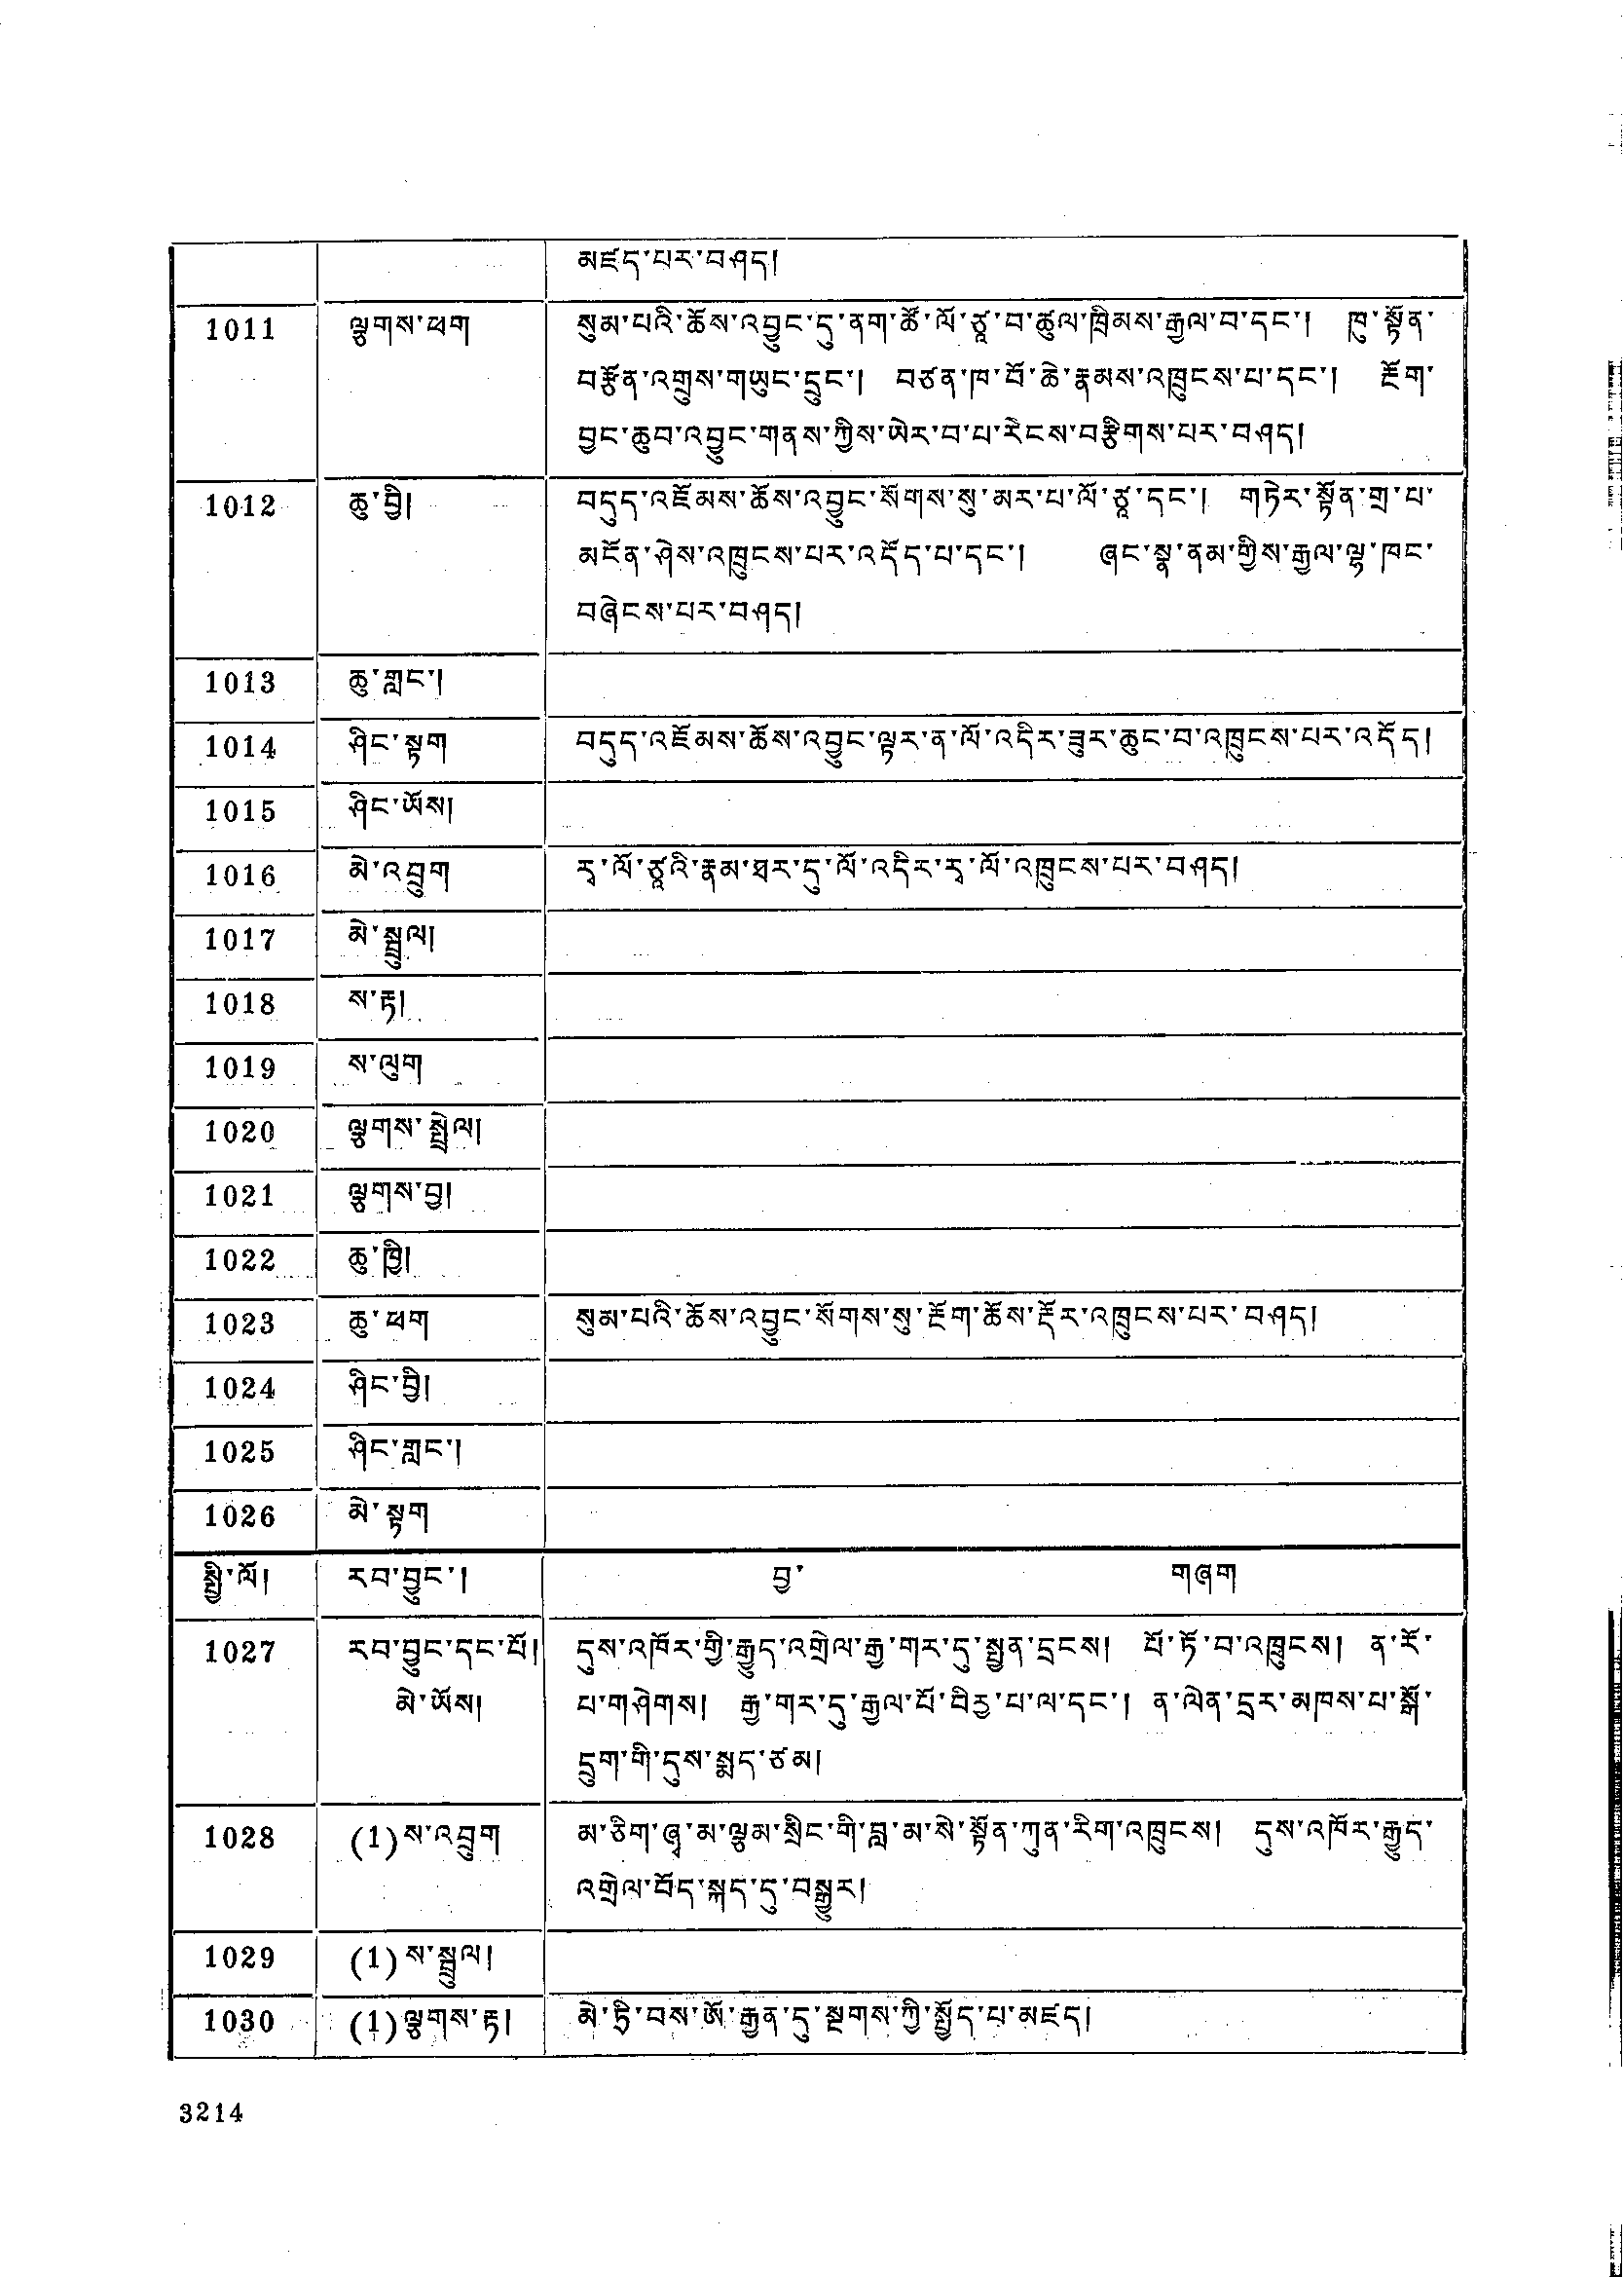 མཛད་པར་བཤད།
1011 ལྕགས་ཕག སུམ་པའི་ཆོས་འབྱུང་དུ་ནག་ཚོ་ལོ་ཙཱ་བ་ཚུལ་ཁྲིམས་རྒྱལ་བ་དང་། ཁུ་སྟོན་
བརྩོན་འགྲུས་གཡུང་དྲུང་། བཙན་ཁ་བོ་ཆེ་རྣམས་འཁྲུངས་པ་དང་། རྔོག་
བྱང་ཆུབ་འབྱུང་གནས་ཀྱིས་ཡེར་བ་པ་རིངས་བརྩིགས་པར་བཤད།
1012 ཆུ་བྱི། བདུད་འཇོམས་ཆོས་འབྱུང་སོགས་སུ་མར་པ་ལོ་ཙཱ་དང་། གཏེར་སྟོན་གྲ་པ་
མངོན་ཤེས་འཁྲུངས་པར་འདོད་པ་དང་། ཞང་སྣ་ནམ་གྱིས་རྒྱལ་ལྷ་ཁང་
བཞེངས་པར་བཤད།
1013 ཆུ་གླང་།
1014 ཤིང་སྟག བདུད་འཇོམས་ཆོས་འབྱུང་ལྟར་ན་ལོ་འདིར་ཟུར་ཆུང་བ་འཁྲུངས་པར་འདོད།
1015 ཤིང་ཡོས།
1016 མེ་འབྲུག རྭ་ལོ་ཙཱའི་རྣམ་ཐར་དུ་ལོ་འདིར་རྭ་ལོ་འཁྲུངས་པར་བཤད།
1017 མེ་སྦྲུལ།
1018 ས་རྟ།
1019 ས་ལུག
1020 ལྕགས་སྤྲེལ།
1021 ལྕགས་བྱ།
1022 ཆུ་ཁྱི།
1023 ཆུ་ཕག སུམ་པའི་ཆོས་འབྱུང་སོགས་སུ་རྔོག་ཆོས་རྡོར་འཁྲུངས་པར་བཤད།
1024 ཤིང་བྱི།
1025 ཤིང་གླང་།
1026 མེ་སྟག
སྤྱི་ལོ། རབ་བྱུང་། བྱ་ གཞག
1027 རབ་བྱུང་དང་པོ། དུས་འཁོར་གྱི་རྒྱུད་འགྲེལ་རྒྱ་གར་དུ་སྤྱན་དྲངས། པོ་ཏོ་བ་འཁྲུངས། ན་རོ་
མེ་ཡོས། པ་གཤེགས། རྒྱ་གར་དུ་རྒྱལ་པོ་བིརྱ་པ་ལ་དང་། ན་ལེན་དྲར་མཁས་པ་སྒོ་
དྲུག་གི་དུས་སྨད་ཙམ།
1028 (1)ས་འབྲུག མ་ཅིག་ཞྭ་མ་ལྕམ་སྲིང་གི་བླ་མ་སེ་སྟོན་ཀུན་རིག་འཁྲུངས། དུས་འཁོར་རྒྱུད་
འགྲེལ་བོད་སྐད་དུ་བསྒྱུར།
1029 (1)ས་སྦྲུལ།
1030 (1)ལྕགས་རྟ། མེ་ཏྲི་བས་ཨོ་རྒྱན་དུ་སྔགས་ཀྱི་སྤྱོད་པ་མཛད།
3214